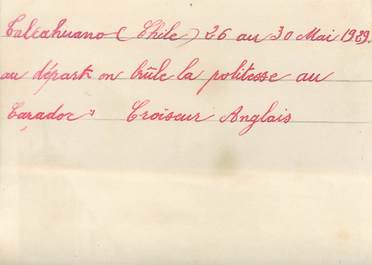 Talcahuano (Chile) 26 au 30 Mai 1929.
au départ on brûle la politesse au
Caradoc" Croiseur Anglais